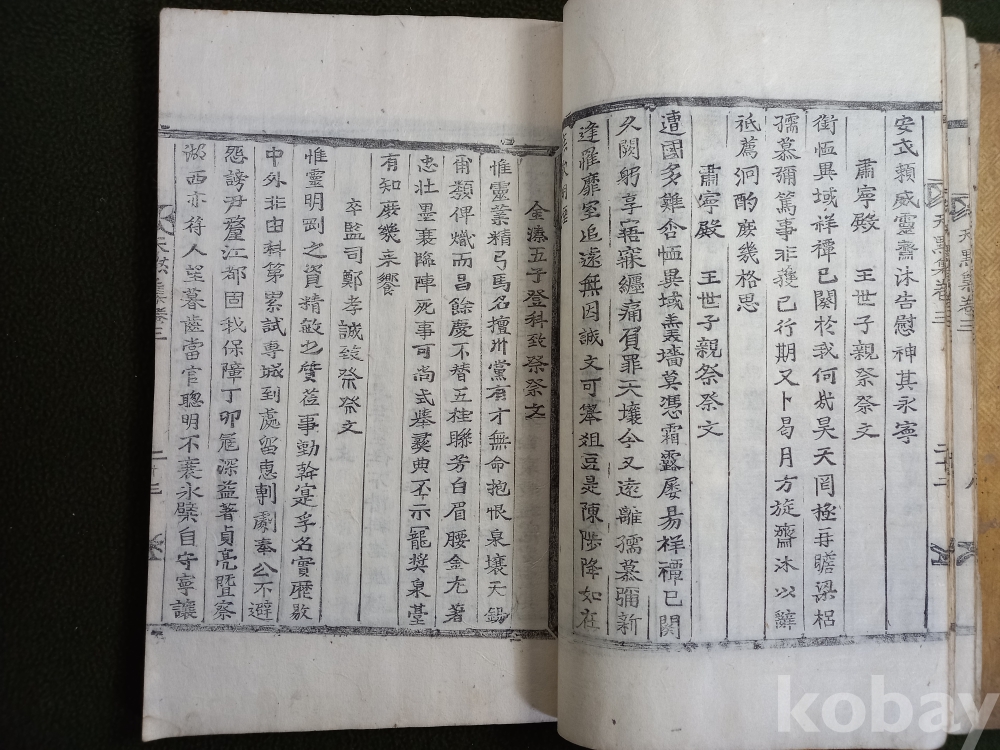 安民賴威靈齋沐告慰神其永寧
肅寧殿　王世子親祭祭文
銜恤異域祥禫已闋於我何哉昊天罔極再瞻梁梠
孺慕彌篤事非獲已行期又卜曷月方旋齋沐以辭
祗薦泂酌庶幾格思
肅寧殿　王世子親祭祭文
遭國多難含恤異域羹墻莫憑霜露屢易祥禫已闋
久闕躬享寤寐纏痛負罪天壤今又遠離孺慕彌新
逢罹靡室追遠無因誠文可舉俎豆是陳陟降如在
金溱五子登科致祭祭文
惟靈業精弓馬名擅州黨有才無命抱恨泉壤天錫
爾類俾熾而昌餘慶不替五桂聯芳白眉腰金尤著
忠壯墨衰臨陣死事可尚式舉彛典丕示寵奬泉臺
有知庶幾來饗
卒監司鄭孝誠致祭祭文
惟靈明剛之資精敏之質莅事勤幹寔孚名實歷敭
中外非由科第累試專城到處留惠剸劇奉公不避
怨謗尹釐江都固我保障丁卯寇深益著貞亮曁察
湖西亦得人望暮齒當官聰明不衰氷櫱自守寧讓
天默集卷三
二十二
天默集卷三
二十三
天默集卷三
kobay